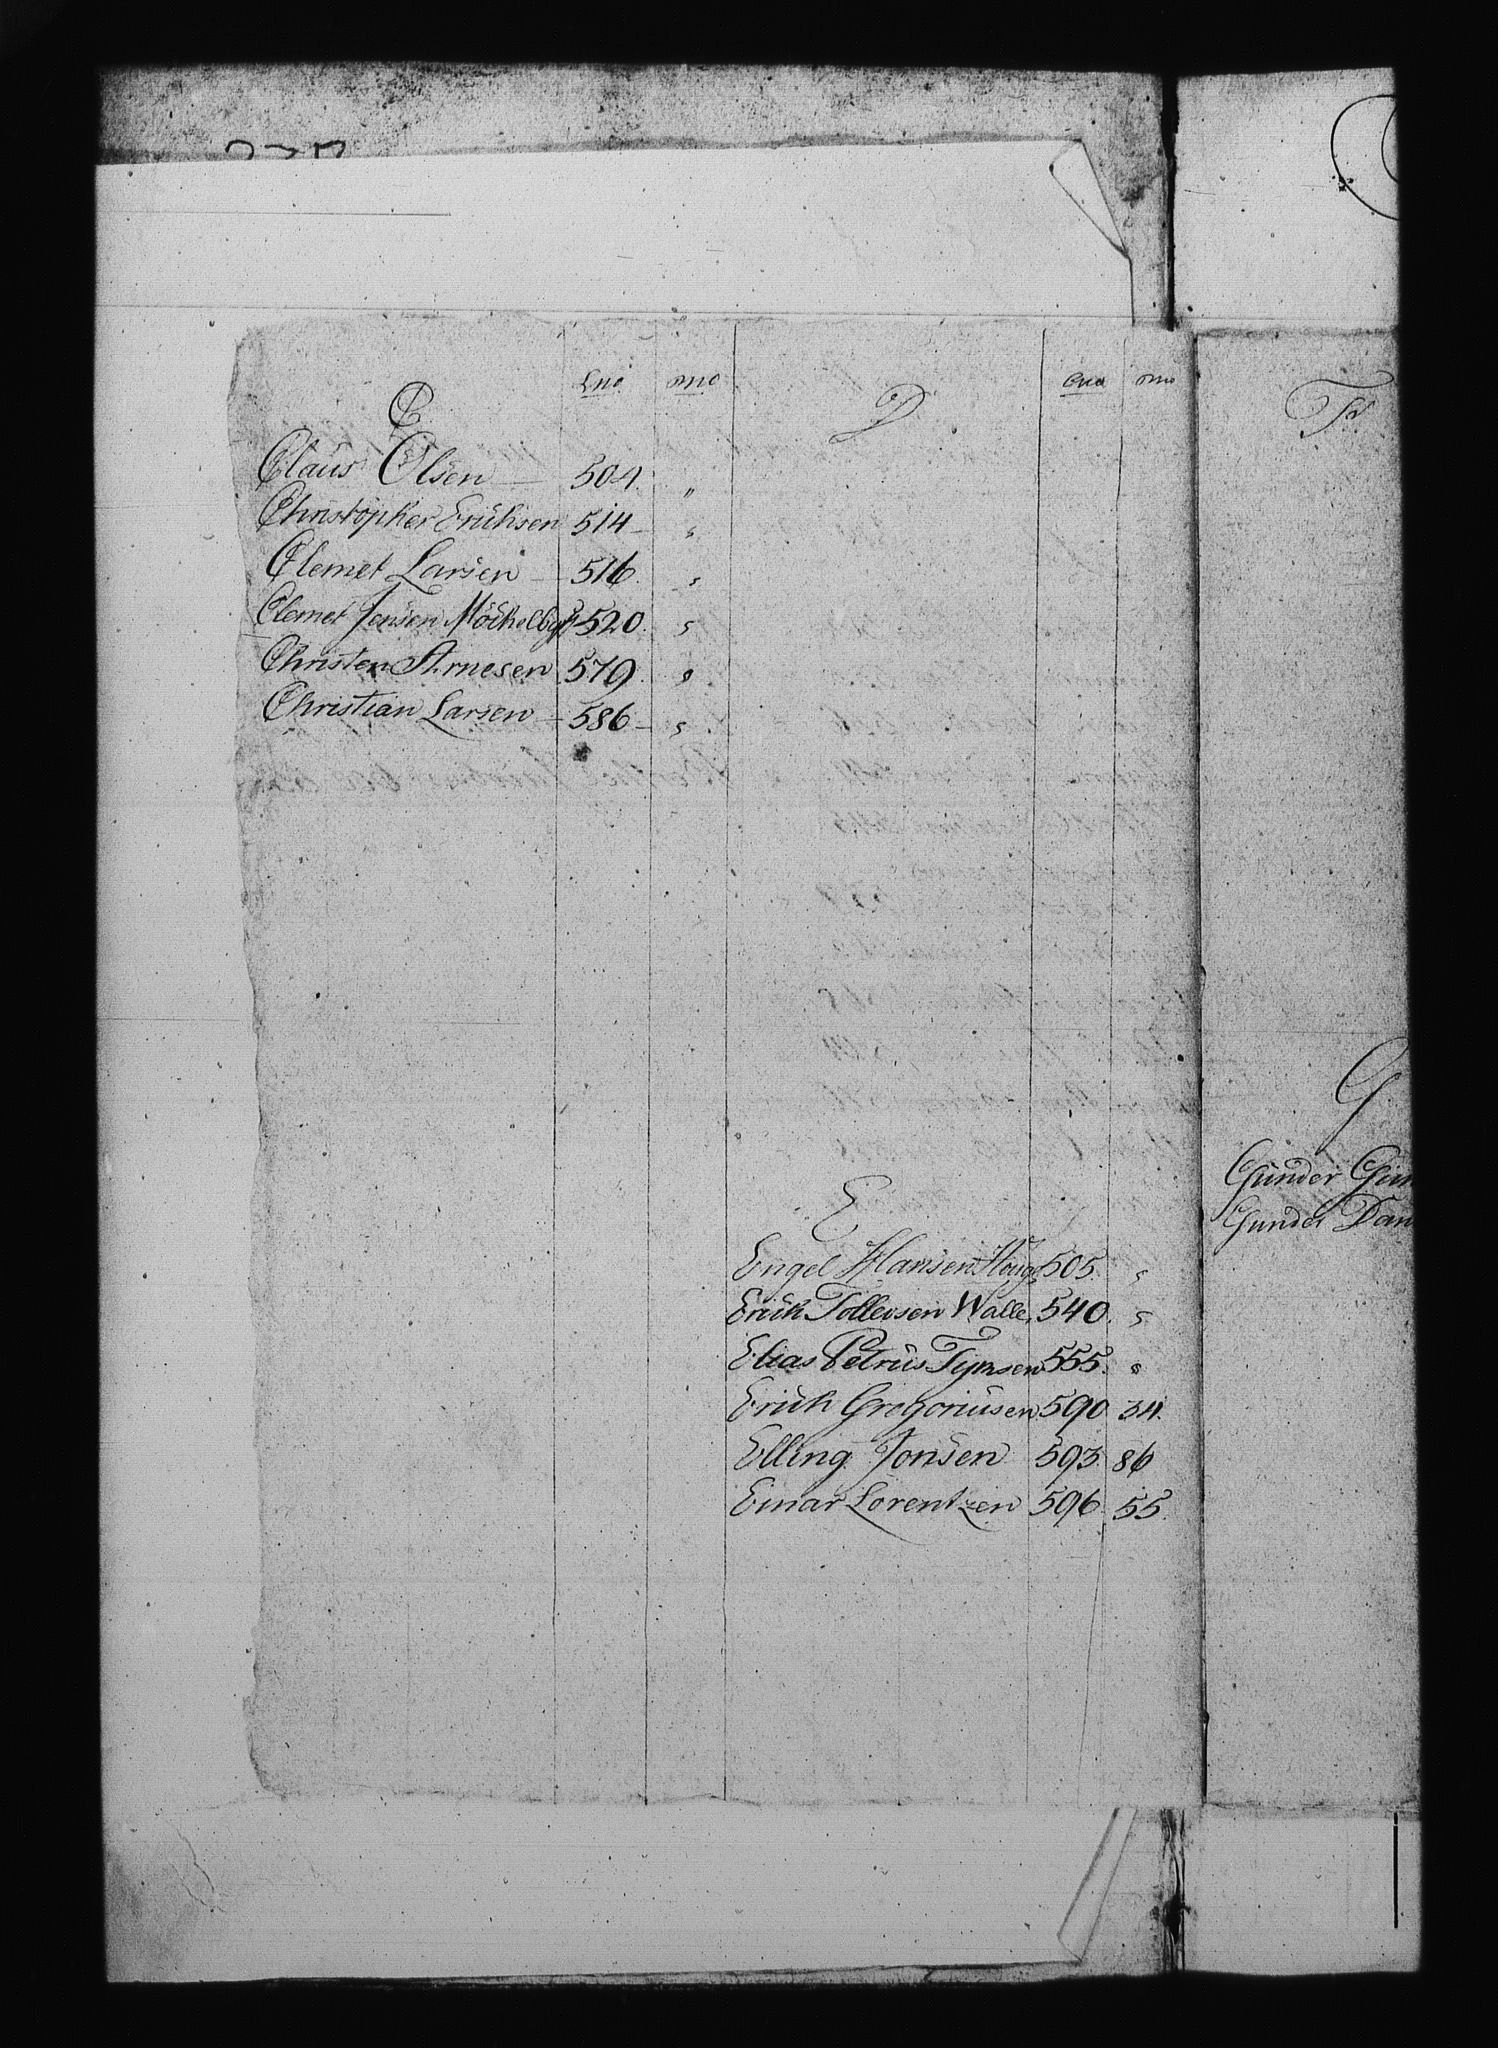 C
Claus Olsen 504. "
Christopher Erichsen 514 "
Clemet Larsen 516. "
Clemet Jensen 520. "
Christen Arnesen 579. "
Christian Larsen 586 "
D
E
Engel Hansen Houg 505. "
Erich Tollevsen Walle. 540. "
Elias Petrus Tymsen 555. "
Erich Gregoriusen 590 34.
Elling Jonsen 593. 86
Einar Lorentzen 596. 55.
F
G
Gunder
Gunder Dan